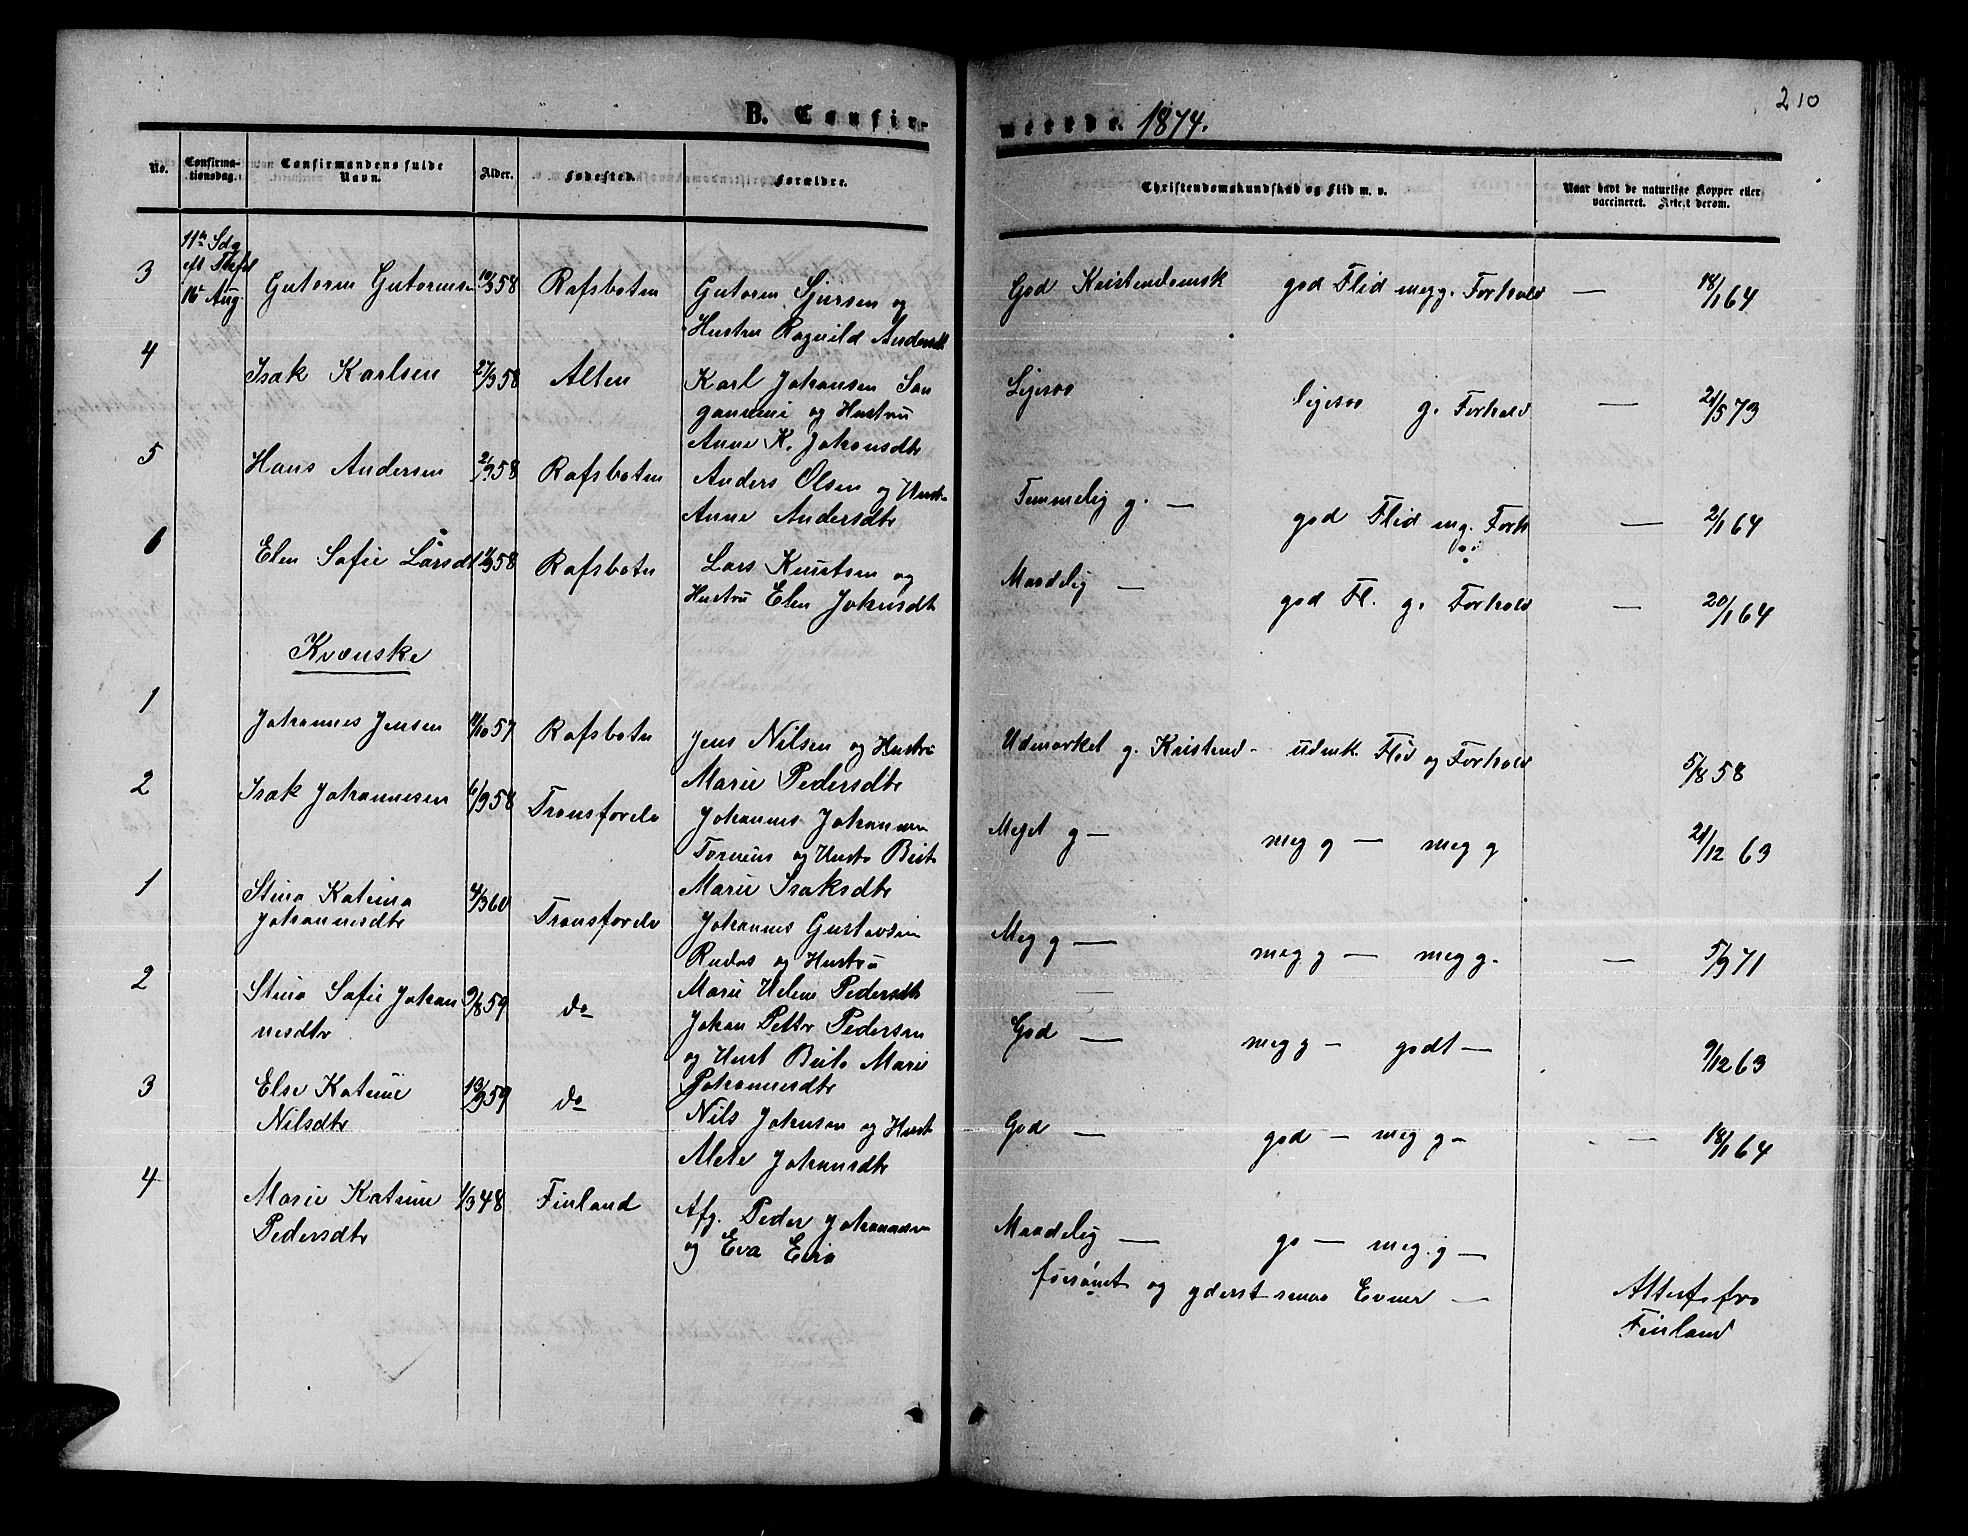 210
B. Confirmerede. 1874.
No. Confirmationsdag. Confirmandens fulde Navn. Alder. Fødested. Forældre. Christendomskundskab og Flid m. v. Naar havt de naturlige Kopper eller vaccineret. Attest derom.
11te Sdg
16 Aug.
3 Gutorm Gutormsen 10/3 58 Rafsboten Gutorm Sjursen og God Kristendomsk god Flid meg g. Forhold — 18/1 64
Hustru Ragnild Andersdt
4 Isak Karlsen 27/3 58 Alten Karl Johansen San Ligesaa ligesaa g. Forhold — 21/5 73
og Hustru
Anne K. Johansdtr
5 Hans Andersen 21/9 58 Rafsboten Anders Olsen og Hust. Temmelig g. — god Flid mg. Forh — 2/1 64
Anne Andersdtr
6 Elen Sofie Larsdt 58 Rafsbotn Lars Knutsen og Maadelig — god Fl. g. Forhold — 20/1 64
Hustru Elen Johnsdtr
Kvænske
1 Johannes Jensen 11/10 57 Rafsbotn Jens Nilsen og Hustru Udmærket g. Kristend- udmk. Flid og Forhold 5/8 58
Marie Pedersdtr
2 Isak Johannesen 6/9 58 Transfarelv Johannes Johannesen Meget g — meg g — meg g 21/12 63
Torneus og Hustr Brita
Marie Isaksdtr
1 Stina Katrina 4/3 60 Transfarelv Johannes Gustavsen Meg g — meg g — meg g. — 5/9 71
Johannesdtr
Rudas og Hustru
Marie Helene Pedersdtr
2 Stina Sofie Johan 9/8 59 do Johan Petter Pedersen God — meg g — godt — 9/12 63
nesdtr
og Hust Brita Marie
Johannesdtr
3 Else Katrine 13/9 59 do Nils Johnsen og Hust God — god — meg g — — 18/1 64
Nilsdtr
Mete Johansdtr
4 Marie Katrine 1/3 48 Finland Afg. Peder Johannesen Maadelig — go — meg. g —
Pedersdtr
og Eva Eira
forsømt og yderst smaa Evner — Attest fra
Finland